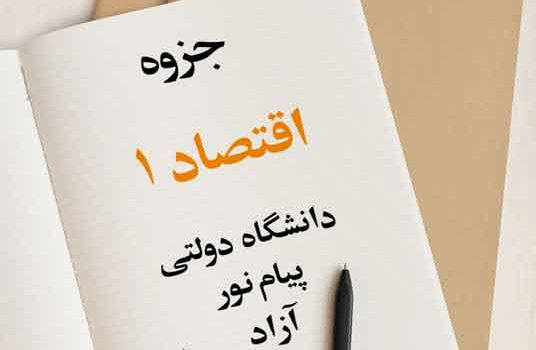 جزوه
اقتصاد ۱
دانشگاه دولتی
پیام نور
آزاد